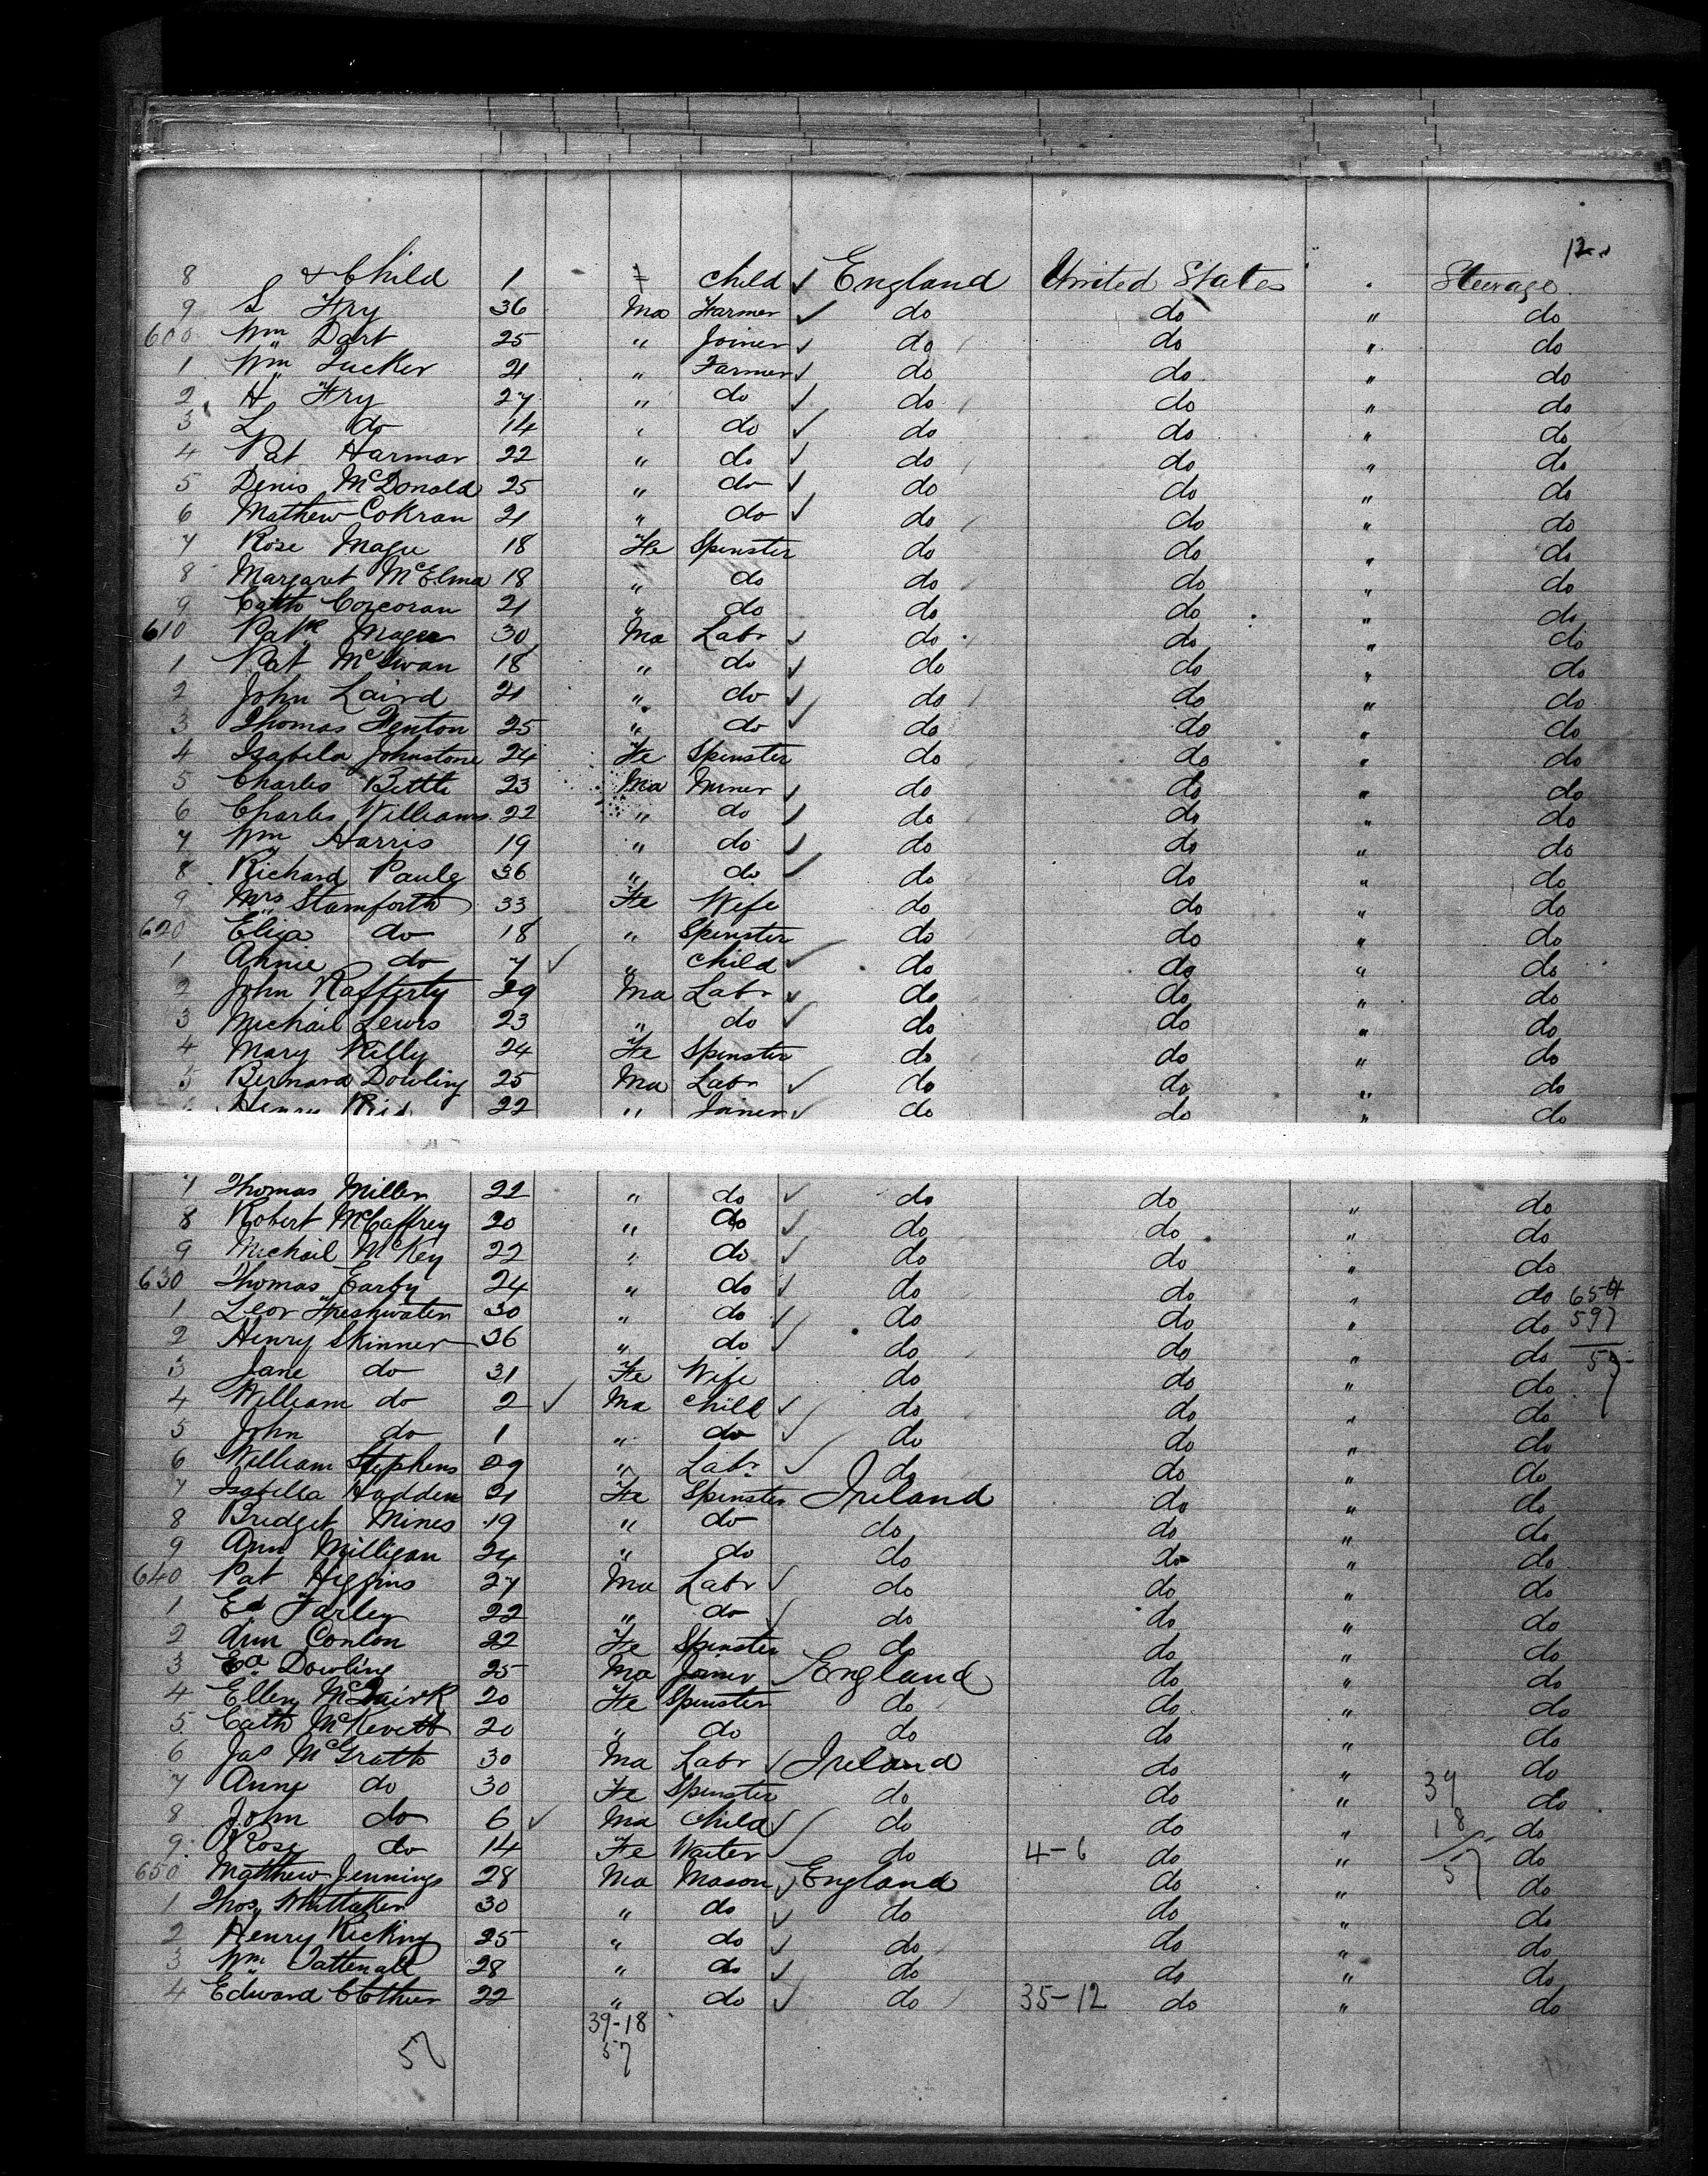 12
8 & Child 1 child England United States " Steerage
9 S Fry 36 Ma Farmer do do " do
600 Wm Dart 25 " Joiner do do " do
1 Wm Tucker 21 " Farmer do do " do
2 H Fry 27 " do do do " do
3 L do 14 " do do do " do
4 Pat Harman 22 " do do do " do
5 Denis McDonald 25 " do do do " do
6 Mathew Cokran 21 " do do do " do
7 Rose Magee 18 Fe Spinster do do " do
8 Margaret McElma 18 " do do do " do
9 Cath Corcoran 21 " do do do " do
610 Patk Magee 30 Ma Labr do do " do
1 Pat 18 " do do do " do
2 John Laird 21 " do do do " do
3 Thomas Fenton 25 " do do do " do
4 Isabela Johnstone 24 Fe Spinster do do " do
5 Charles Bettle 23 Ma Miner do do " do
6 Charles Williams 22 " do do do " do
7 Wm Harris 19 " do do do " do
8 Richard Pauly 36 " do do do " do
9 Mrs Stamforth 33 Fe Wife do do " do
620 Eliza do 18 " Spinster do do " do
1 Annie do 7 " child do do " do
2 John Rafferty 29 Ma Labr do do " do
3 Michail Lewis 23 " do do do " do
4 Mary Kelly 24 Fe Spinster do do " do
5 Bernard Dowling 25 Ma Labr do do " do
Henry Reid 22 " Joiner do do " do
7 Thomas Miller 22 " do do do " do
8 Robert McCaffrey 20 " do do do " do
9 Michail McKey 22 " do do do " do
630 Thomas Earby 24 " do do do " do 654
1 Leor Freshwater 30 " do do do " do 597
2 Henry Skinner 36 " do do do " do 57
3 Jane do 31 Fe Wife do do " do
4 William do 2 Ma Child do do " do
5 John do 1 " do do do " do
6 William Stephens 29 " Labr do do " do
7 Isabella Hadden 21 Fe Spinster Ireland do " do
8 Bridget Mines 19 " do do do " do
9 Ann Milligan 24 " do do do " do
640 Pat Higgins 27 Ma Labr do do " do
1 Ed Farley 22 " do do do " do
2 Ann Conlon 22 Fe Spinster do do " do
3 Ed Dowling 25 Ma Joiner England do " do
4 Ellen 20 Fe Spinster do do " do
5 Cath McKevett 20 " do do do " do
6 Jas McGrath 30 Ma Labr Ireland do " do
7 Anne do 30 Fe Spinster do do " 39 do
8 John do 6 Ma Child do do " 18 do
9 Rose do 14 Fe Waiter do 4-6 do " 57 do
650 Matthew Jennings 28 Ma Mason England do " do
1 Thos Whittaker 30 " do do do " do
2 Henry Kicking 25 " do do do " do
3 Wm Tattenall 28 " do do do " do
4 Edward 22 " do do 35-12 do " do
39-18
57 57